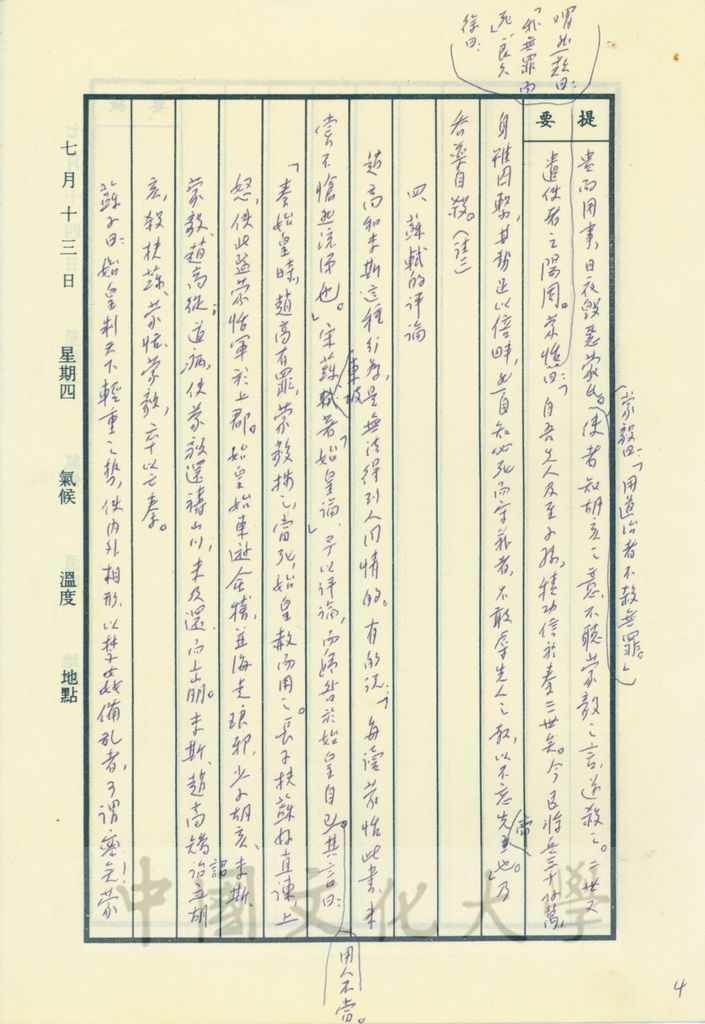 喟然歎曰：
「我無罪而
死」良久
徐曰：
提要
貴而用事，日夜毀惡蒙氏。使者知胡亥之意，不聽蒙毅之言，遂殺之。二世又
（蒙毅曰：「用道治者不殺無罪。」）
遣使者之陽周。蒙恬曰：「自吾先人及至子孫，積功信於秦三世矣。今臣將兵三十餘萬，
身雖囚繫，其勢足以倍畔，然自知必死而守義者，不敢辱先人之教，以不忘先帝也。」乃
吞藥自殺。（註三）
四、蘇軾的評論
趙高和李斯這種行為，是無法得到人同情的。有的說：「每讀蒙恬此書，未
嘗不愴然流涕也」。宋蘇東坡著「始皇論」予以評論，而歸咎於始皇自己用人不當。其言曰：
「秦始皇時，趙高有罪，蒙毅按之，當死，始皇赦而用之。長子扶蘇好直諫，上
怒，使北監蒙恬軍於上郡。始皇始東遊會稽，並海走琅邪，少子胡亥、李斯、
蒙毅、趙高從，道病，使蒙毅還禱山川，未及還，而上崩。李斯、趙高矯詔立胡
亥，殺扶蘇、蒙恬、蒙毅，卒以亡秦。
蘇子曰：始皇制天下輕重之勢，使內外相形，以禁姦備亂者，可謂密矣！蒙
七月十三日 星期四 氣候 溫度 地點
中國文化大學
4